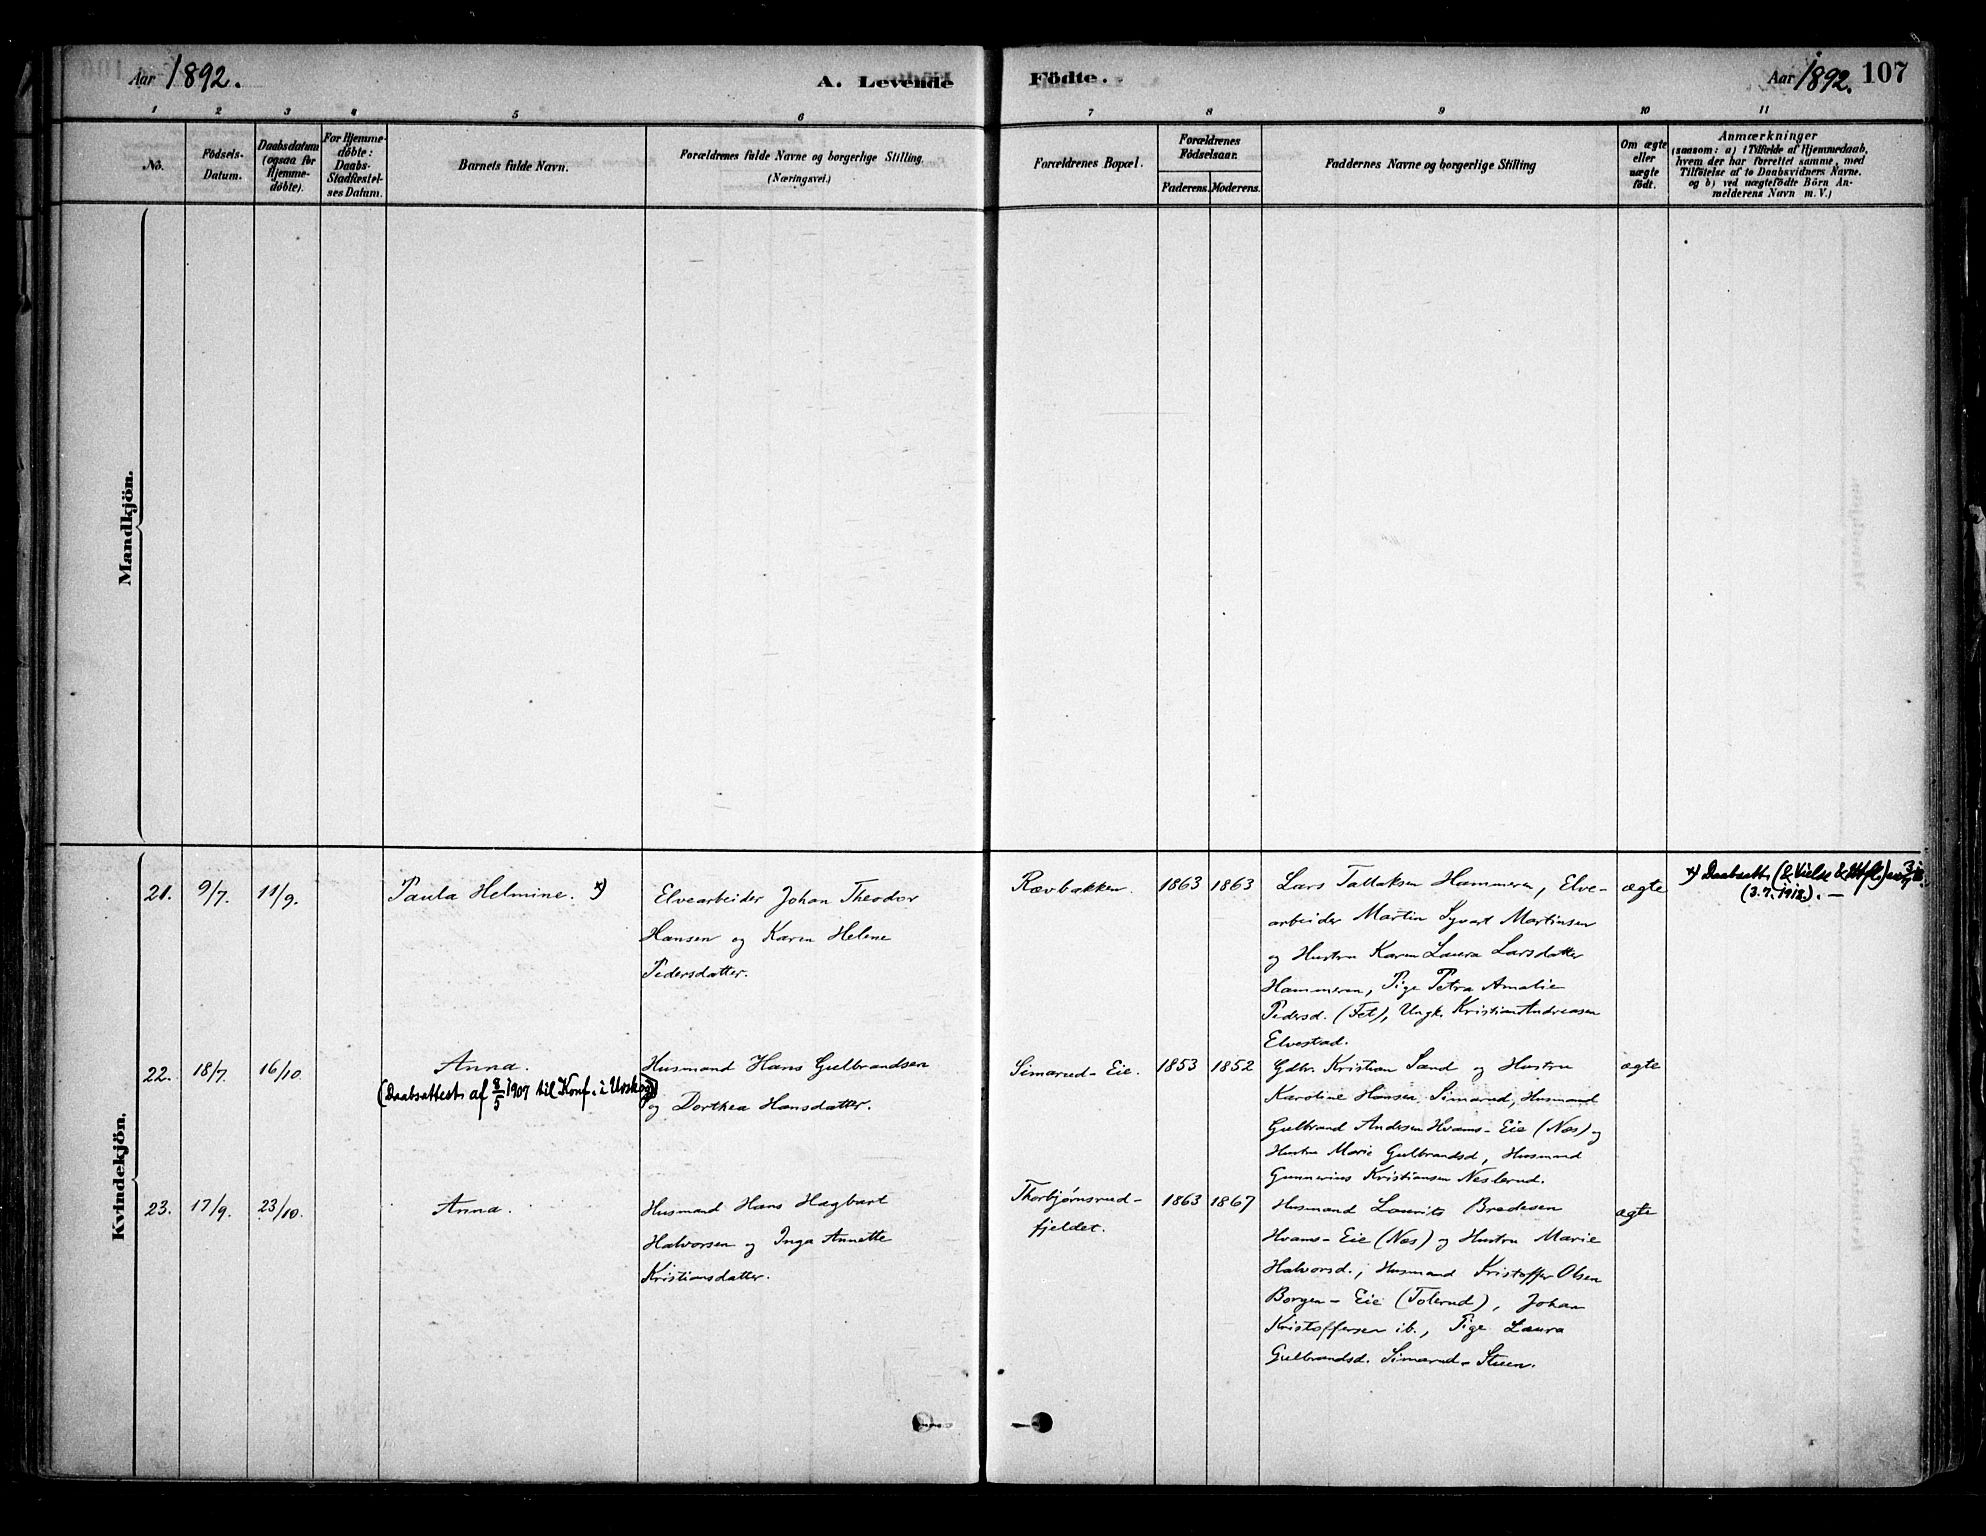 Aar 1892.
A. Levende
Födte.
Aar 1892.
107
1 2 3 4 5 6 7 8 9 10 11
No.
Födsels-
Datum.
Daabsdatum
(ogsaa for
Hjemme-
döbte).
For Hjemme-
døbte:
Daabs-
Stadfæstel-
ses Datum.
Barnets fulde Navn.
Forældrenes fulde Navne og borgerlige Stilling.
(Næringsvei.)
Forældrenes Bopæl.
Forældrenes
Födselsaar.
Faderens. Moderens.
Faddernes Navne og borgerlige Stilling
Om ægte
eller
uægte
födt.
Anmærkninger
(saasom: a) i Tilfælde af Hjemmedaab,
hvem der har forrettet samme, med
Tilföielse af to Daabsvidners Navne.
og b) ved uægtefödte Börn An-
melderens Navn m. V.)
Mandkjön.
Kvindekjön.
21. 9/7. 11/9.
Paula Helmine. x)
Elvearbeider Johan Theodor
Hansen og Karen Helene
Pedersdatter.
Rævbakken.
1863 1863
Lars Tallaksen Hammeren, Elve-
arbeider Martin Syvert Martinsen
og Hustru Karen Laura Larsdatter
Hammeren, Pige Petra Amalie
Pedersd. (Fet), Ungk. Kristian Andreasen
Elvestad.
ægte
x) Daabsatt.
(3.7.1918). —
22. 18/7. 16/10.
Anna.
(Daabsattest af 8/5 1907 til Konf. i Urskog)
Husmand Hans Gulbrandsen
og Dorthea Hansdatter.
Simarud-Eie.
1853 1852
Gdbr. Kristian Sand og Hustru
Karoline Hansen Simarud, Husmand
Gulbrand Andersen Hvams-Eie (Næs) og
Hustru Marie Gulbrandsd, Husmand
Gunnerius Kristiansen Neslerud.
ægte
23. 17/9. 23/10.
Anna.
Husmand Hans Hagbart
Halvorsen og Inga Annette
Kristiansdatter.
Thorbjørnsrud-
fjeldet.
1863 1867
Husmand Laurits Bredesen
Hvams-Eie (Næs) og Hustru Marie
Halvorsd., Husmand Kristoffer Olsen
Borgen-Eie (Tolerud), Johan
Kristoffersen ib., Pige Laura
Gulbrandsd. Simarud-Stuen.
ægte